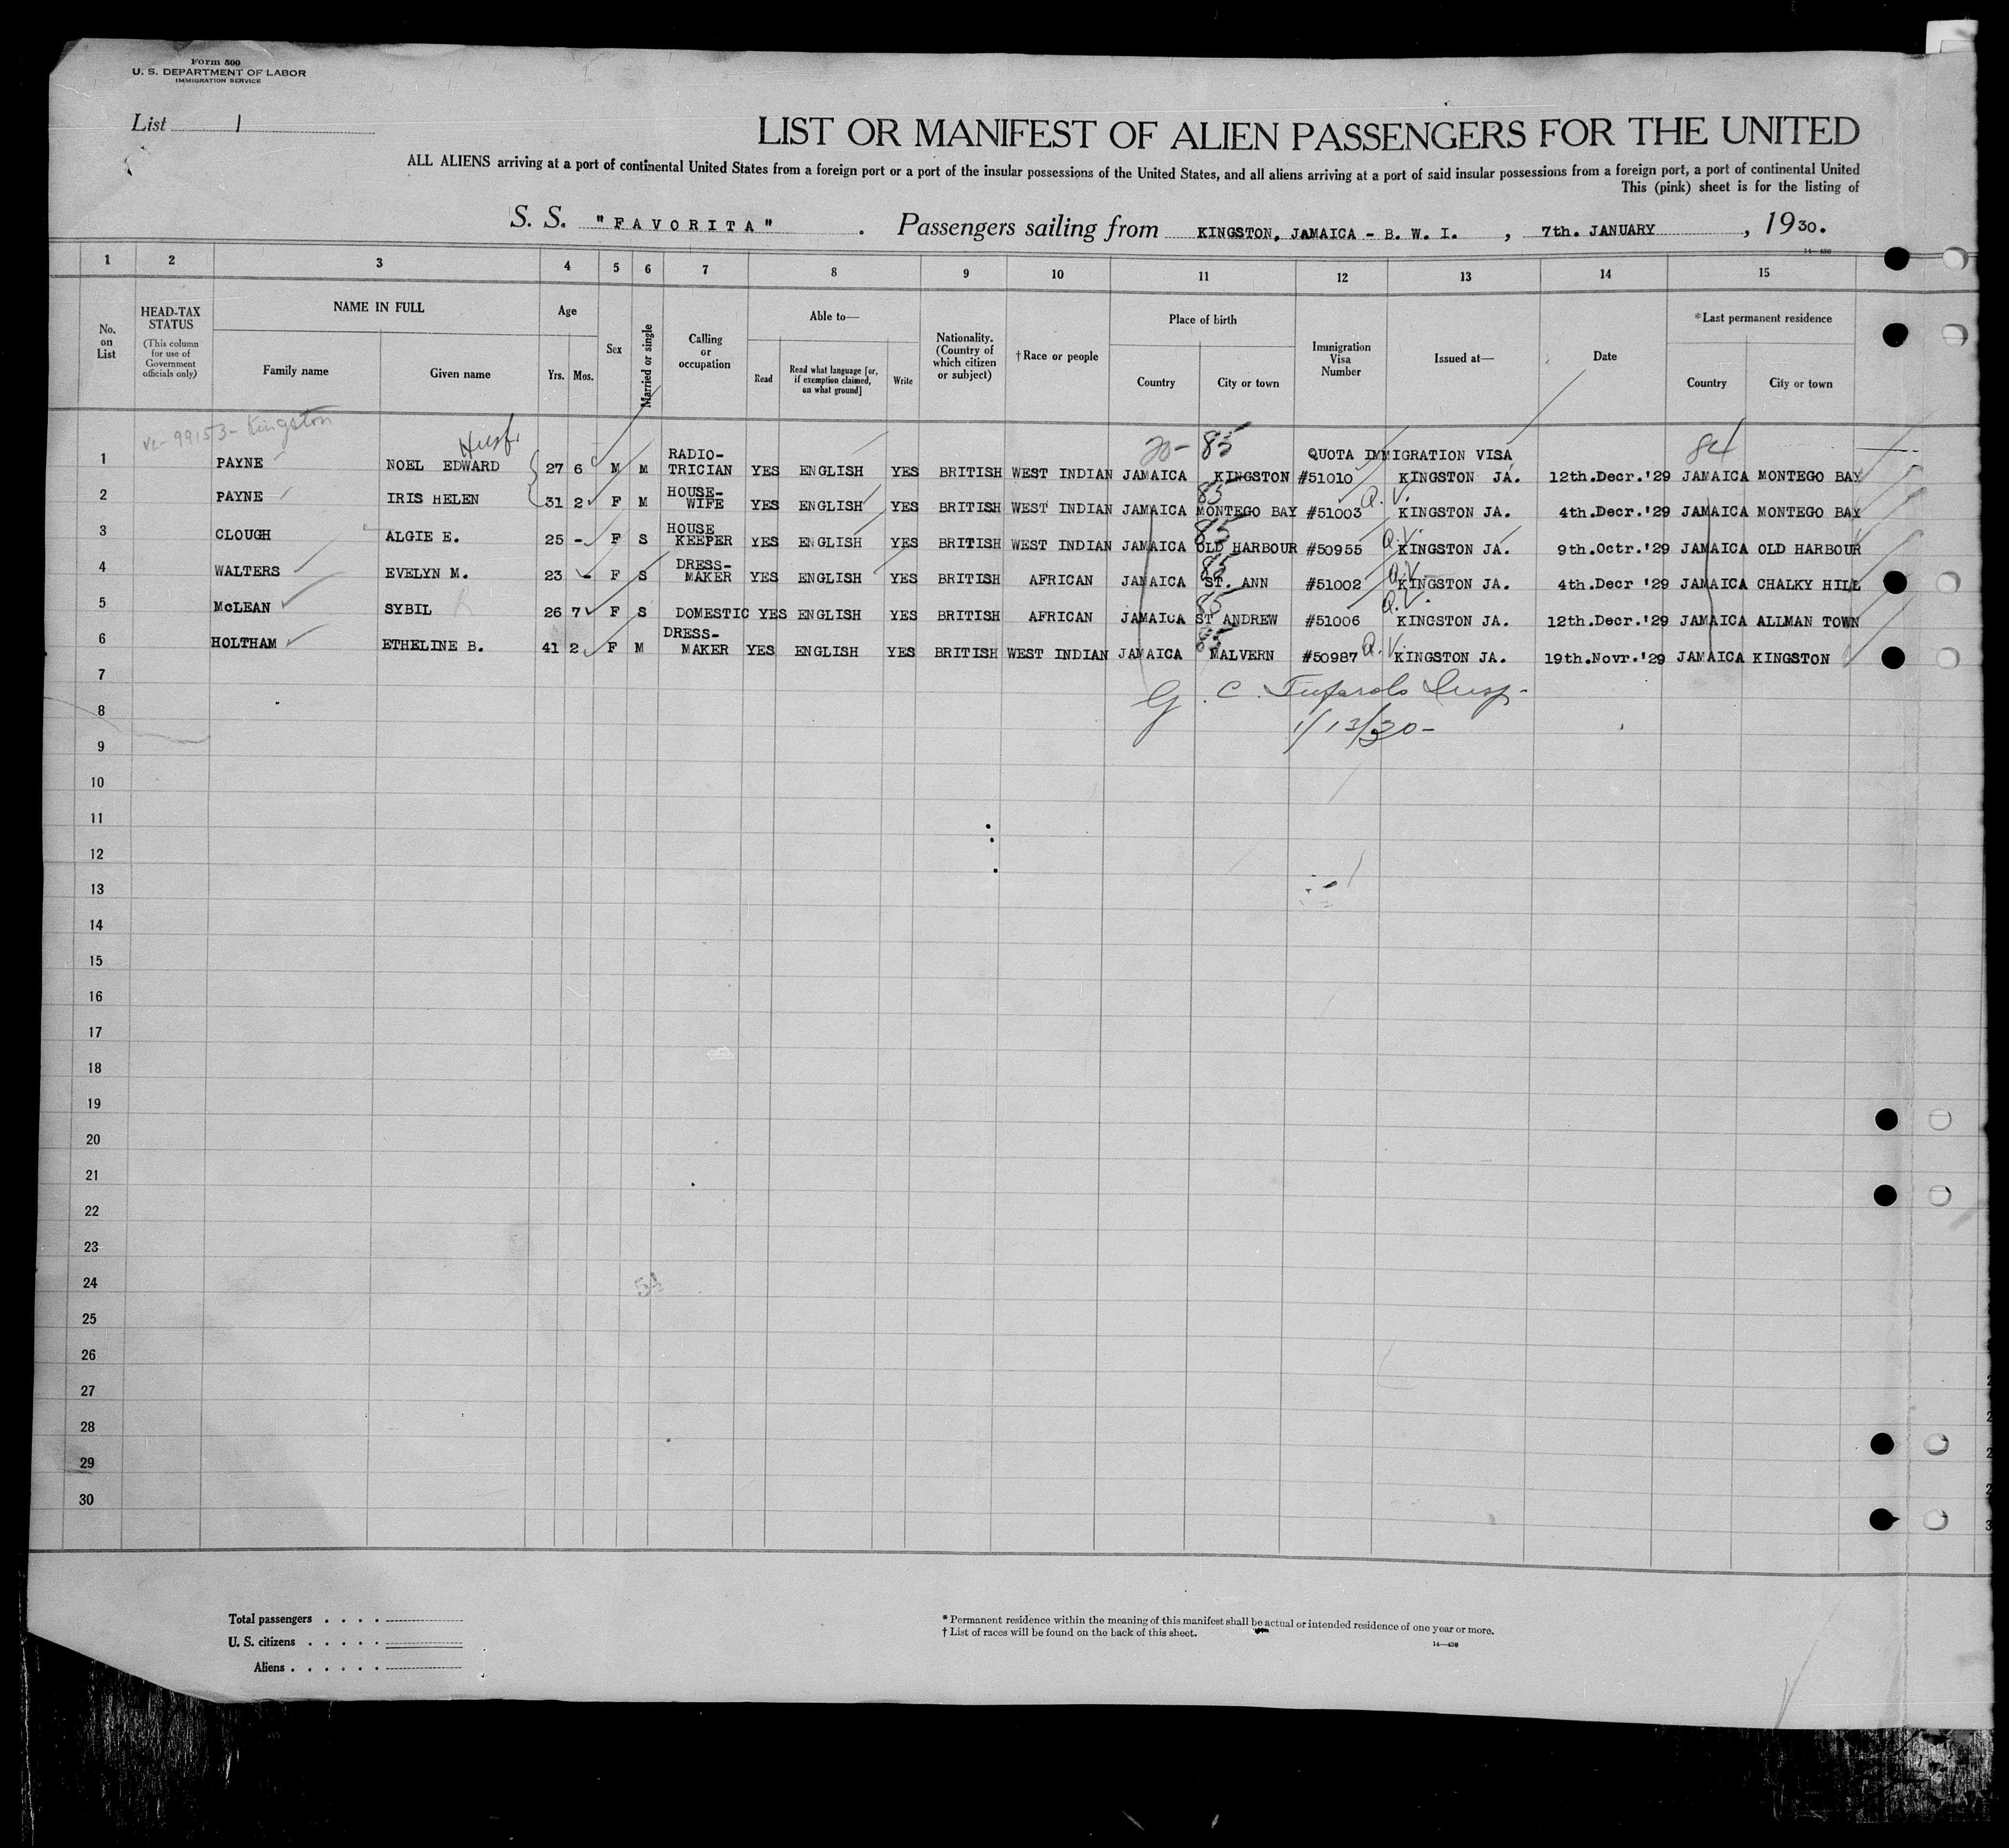 Form 500
U. S. DEPARTMENT OF LABOR
IMMIGRATION SERVICE
List 1
LIST OR MANIFEST OF ALIEN PASSENGERS FOR THE UNITED
ALL ALIENS arriving at a port of continental United States from a foreign port or a port of the insular possessions of the United States, and all aliens arriving at a port of said insular possessions from a foreign port, a port of continental United
This (pink) sheet is for the listing of
S. S. "FAVORITA" . Passengers sailing from KINGSTON, JAMAICA - B. W. I. , 7th. JANUARY , 1930.
14—498
1 2 3 4 5 6 7 8 9 10 11 12 13 14 15
No. on List
HEAD-TAX STATUS
(This column for use of Government officials only)
NAME IN FULL
Family name
Given name
Age
Yrs. Mos.
Sex
Married or single
Calling or occupation
Able to—
Read
Read what language [or, if exemption claimed, on what ground]
Write
Nationality. (Country of which citizen or subject)
† Race or people
Place of birth
Country
City or town
Immigration Visa Number
Issued at—
Date
*Last permanent residence
Country
City or town
99153 - Kingston
Husb.
20- 85
QUOTA IMMIGRATION VISA
84
1 PAYNE NOEL EDWARD 27 6 M M RADIO-TRICIAN YES ENGLISH YES BRITISH WEST INDIAN JAMAICA KINGSTON #51010 KINGSTON JA. 12th.Decr.'29 JAMAICA MONTEGO BAY
2 PAYNE IRIS HELEN 31 2 F M HOUSE-WIFE YES ENGLISH YES BRITISH WEST INDIAN JAMAICA 85 MONTEGO BAY #51003 Q.V. KINGSTON JA. 4th.Decr.'29 JAMAICA MONTEGO BAY
3 CLOUGH ALGIE E. 25 - F S HOUSE KEEPER YES ENGLISH YES BRITISH WEST INDIAN JAMAICA 85 OLD HARBOUR #50955 Q.V. KINGSTON JA. 9th.Octr.'29 JAMAICA OLD HARBOUR
4 WALTERS EVELYN M. 23 - F S DRESS-MAKER YES ENGLISH YES BRITISH AFRICAN JAMAICA 85 ST. ANN #51002 Q.V. KINGSTON JA. 4th.Decr '29 JAMAICA CHALKY HILL
5 McLEAN SYBIL R 26 7 F S DOMESTIC YES ENGLISH YES BRITISH AFRICAN JAMAICA 85 ST ANDREW #51006 Q.V. KINGSTON JA. 12th.Decr.'29 JAMAICA ALLMAN TOWN
6 HOLTHAM ETHELINE B. 41 2 F M DRESS-MAKER YES ENGLISH YES BRITISH WEST INDIAN JAMAICA 85 MALVERN #50987 Q.V. KINGSTON JA. 19th.Novr.'29 JAMAICA KINGSTON
7 G. C. Insp.
8 1/13/30-
9
10
11
12
13
14
15
16
17
18
19
20
21
22
23
24 54
25
26
27
28
29
30
Total passengers . . . .
U. S. citizens . . . . .
Aliens . . . . . .
* Permanent residence within the meaning of this manifest shall be actual or intended residence of one year or more.
† List of races will be found on the back of this sheet.
14—498